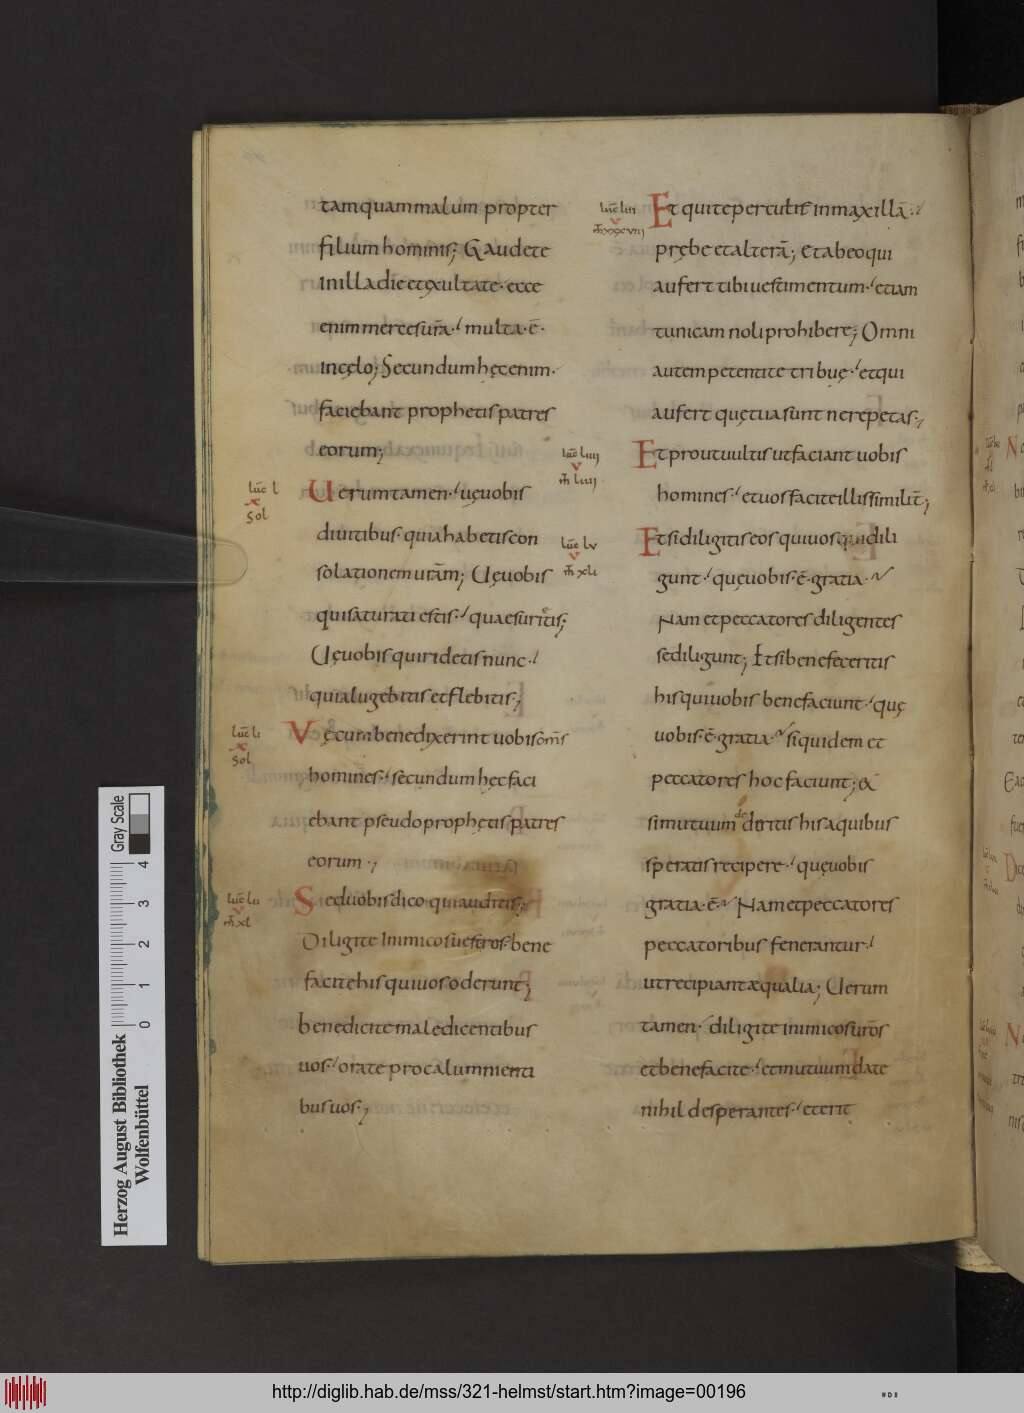 tamquam malum propter
filium hominis; Gaudete
In illa die et exultate· ecce
enim merces ur̄a·' multa· ē·
in cęlo; Secundum hęc enim·
faciebant prophetis patres
eorum;
luc̄ l
x
sol
Uerum tamen·' uę uobis
diuitibus· quia habetis con
solationem urām; Uę uobis
qui saturati estis·' quia esuritis;
Uę uobis qui ridetis nunc·'
quia lugebitis et flebitis·,
luc̄ li
x
sol
Vę cum benedixerint uobis om̄s
homines·' secundum hęc faci
ebant pseudoprophętis patres
eorum·,
luc̄ lii
v
m̄ xl
Sed uobis dico· qui auditis;
Diligite Inimicos uestros· bene
facite his qui uos oderunt;
benedicite maledicentibus
uos·' orate pro calummenti
bus uos·,
luc̄ liii
v
Et qui te percutit in maxillā·
prębe et alterā; Et ab eo qui
aufert tibi uestimentum·' etiam
tunicam noli prohibere; Omni
autem petenti te tribuę·' et qui
aufert quę tua sunt ne repetas·,
luc̄ liiii
v
m̄ liiii
Et prout uultis ut faciant uobis
homines·' et uos facite illis similit̄;
luc̄ lv
v
m̄ xli
Et si diligitis eos qui uos dili
gunt·' quę uobis· ē· gratia·
Nam et peccatores diligentes
se diligunt; Et si benefeceritis
his qui uobis benefaciunt·' quę
uobis· ē· gratia· siquidem et
peccatores hoc faciunt; &
si mutuum dederitis his a quibus
speratis recipere·' quę uobis
gratia· ē· Nam et peccatores
peccatoribus fenerantur·'
ut recipiant æqualia; Uerum
tamen·' diligite inimicos ur̄os
et benefacite·' et mutuum date
nihil desperantes·' et erit
Gray Scale
4
3
2
1
0
Herzog August Bibliothek
Wolfenbüttel
http://diglib.hab.de/mss/321-helmst/start.htm?image=00196